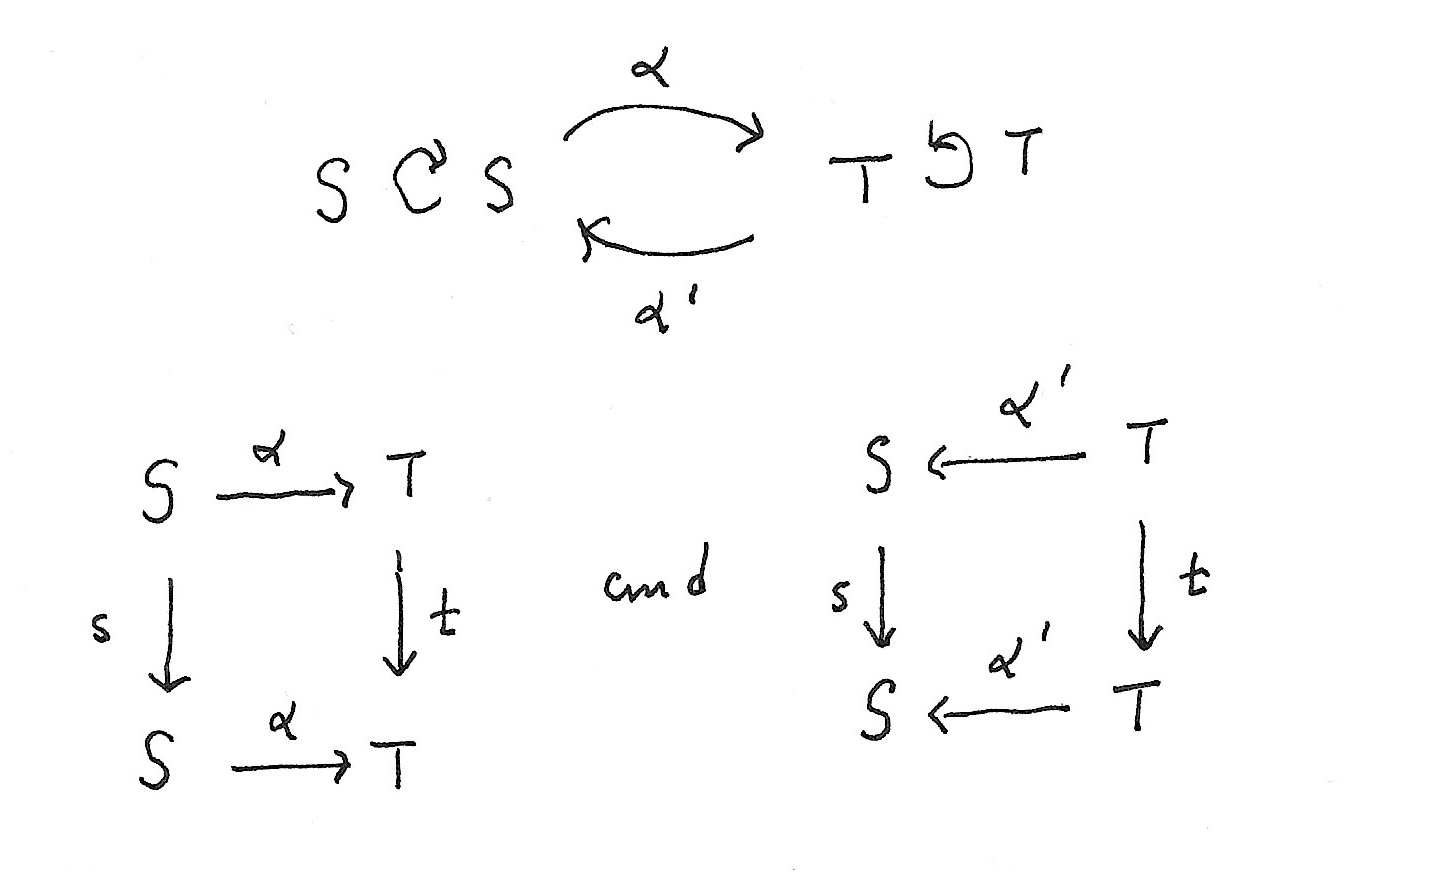 α
S S T T
α'
α'
S α T S T
s t and s t
α α'
S T S T